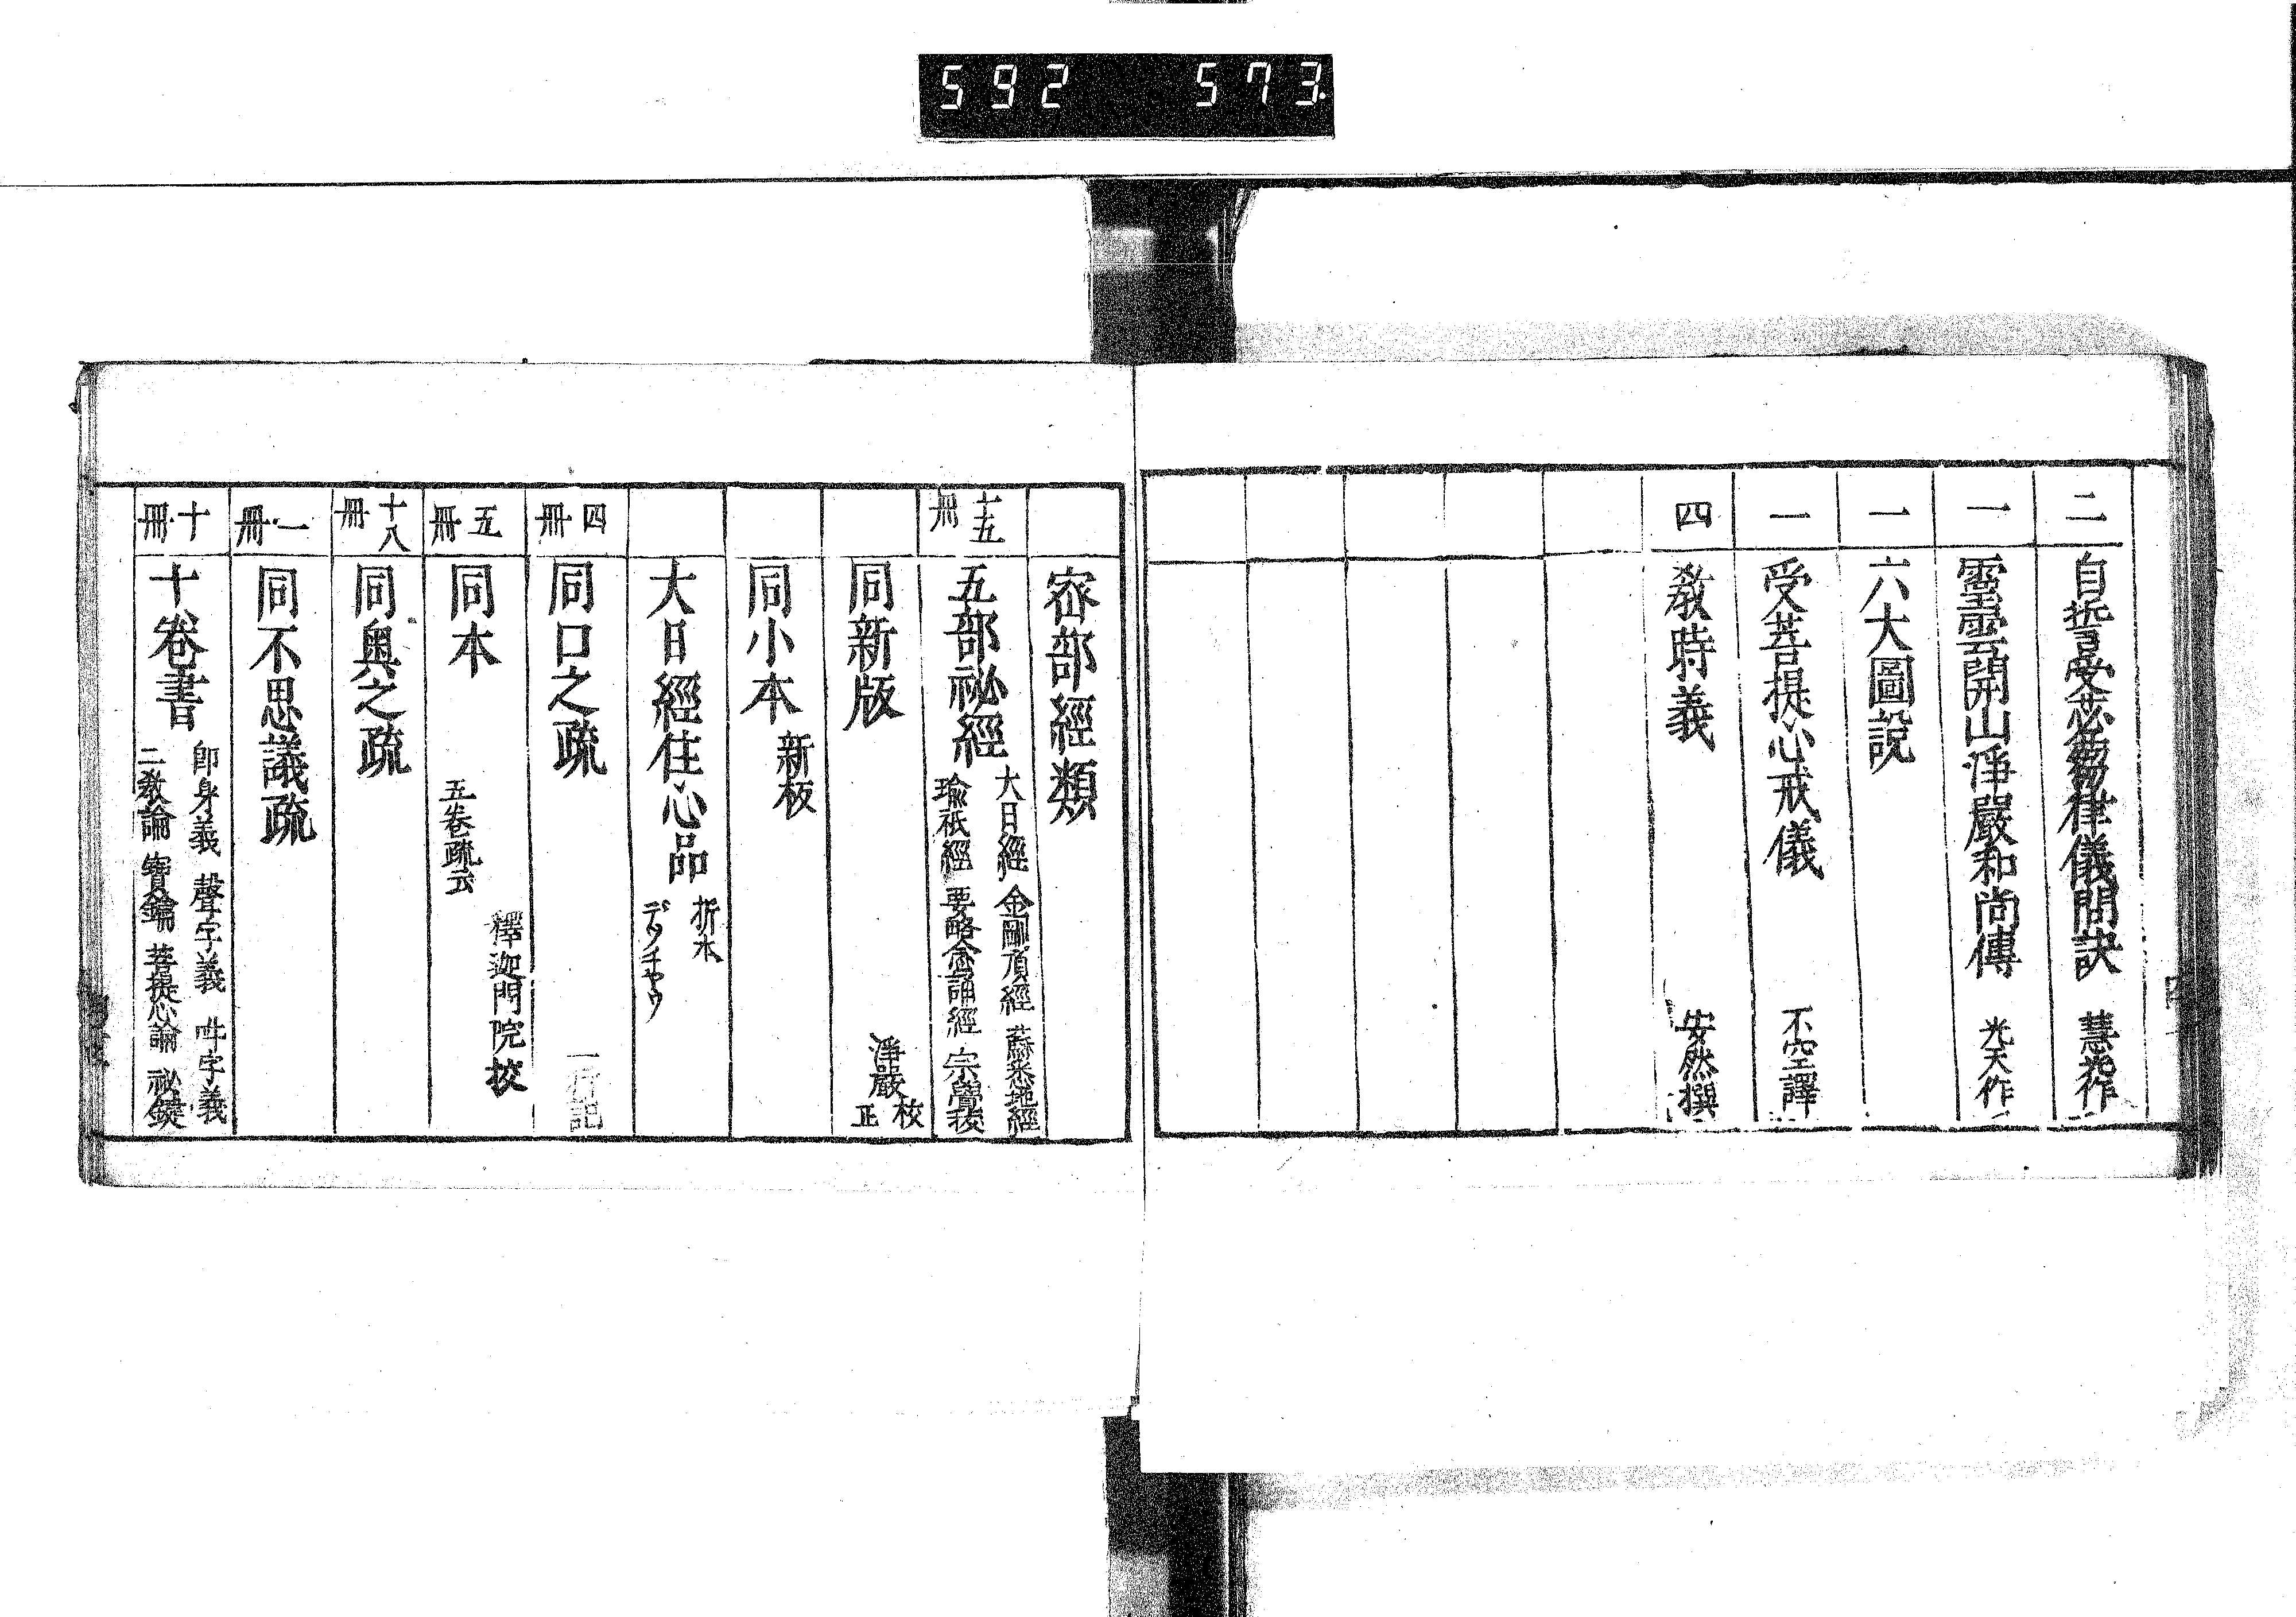 592 573
二 自誓受苾蒭律儀問訣 慧光作
一 靈雲開山淨嚴和尚傳 光天作
一 六大圖說
一 受菩提心戒儀 不空譯
四 敎時義 安然撰
密部經類
十五冊 五部祕經 大日經 金剛頂經 蘇悉地經
瑜祇經 要略念誦經 宗覺校
同新版 淨嚴校正
同小本 新板
大日經住心品 折本
デツチヤウ
四冊 同口之疏 一行記
五冊 同本 五卷疏云 釋迦門院校
十八冊 同奧之疏
一冊 同不思議疏
十冊 十卷書 卽身義 聲字義 吽字義
二敎論 寶鑰 菩提心論 祕鍵